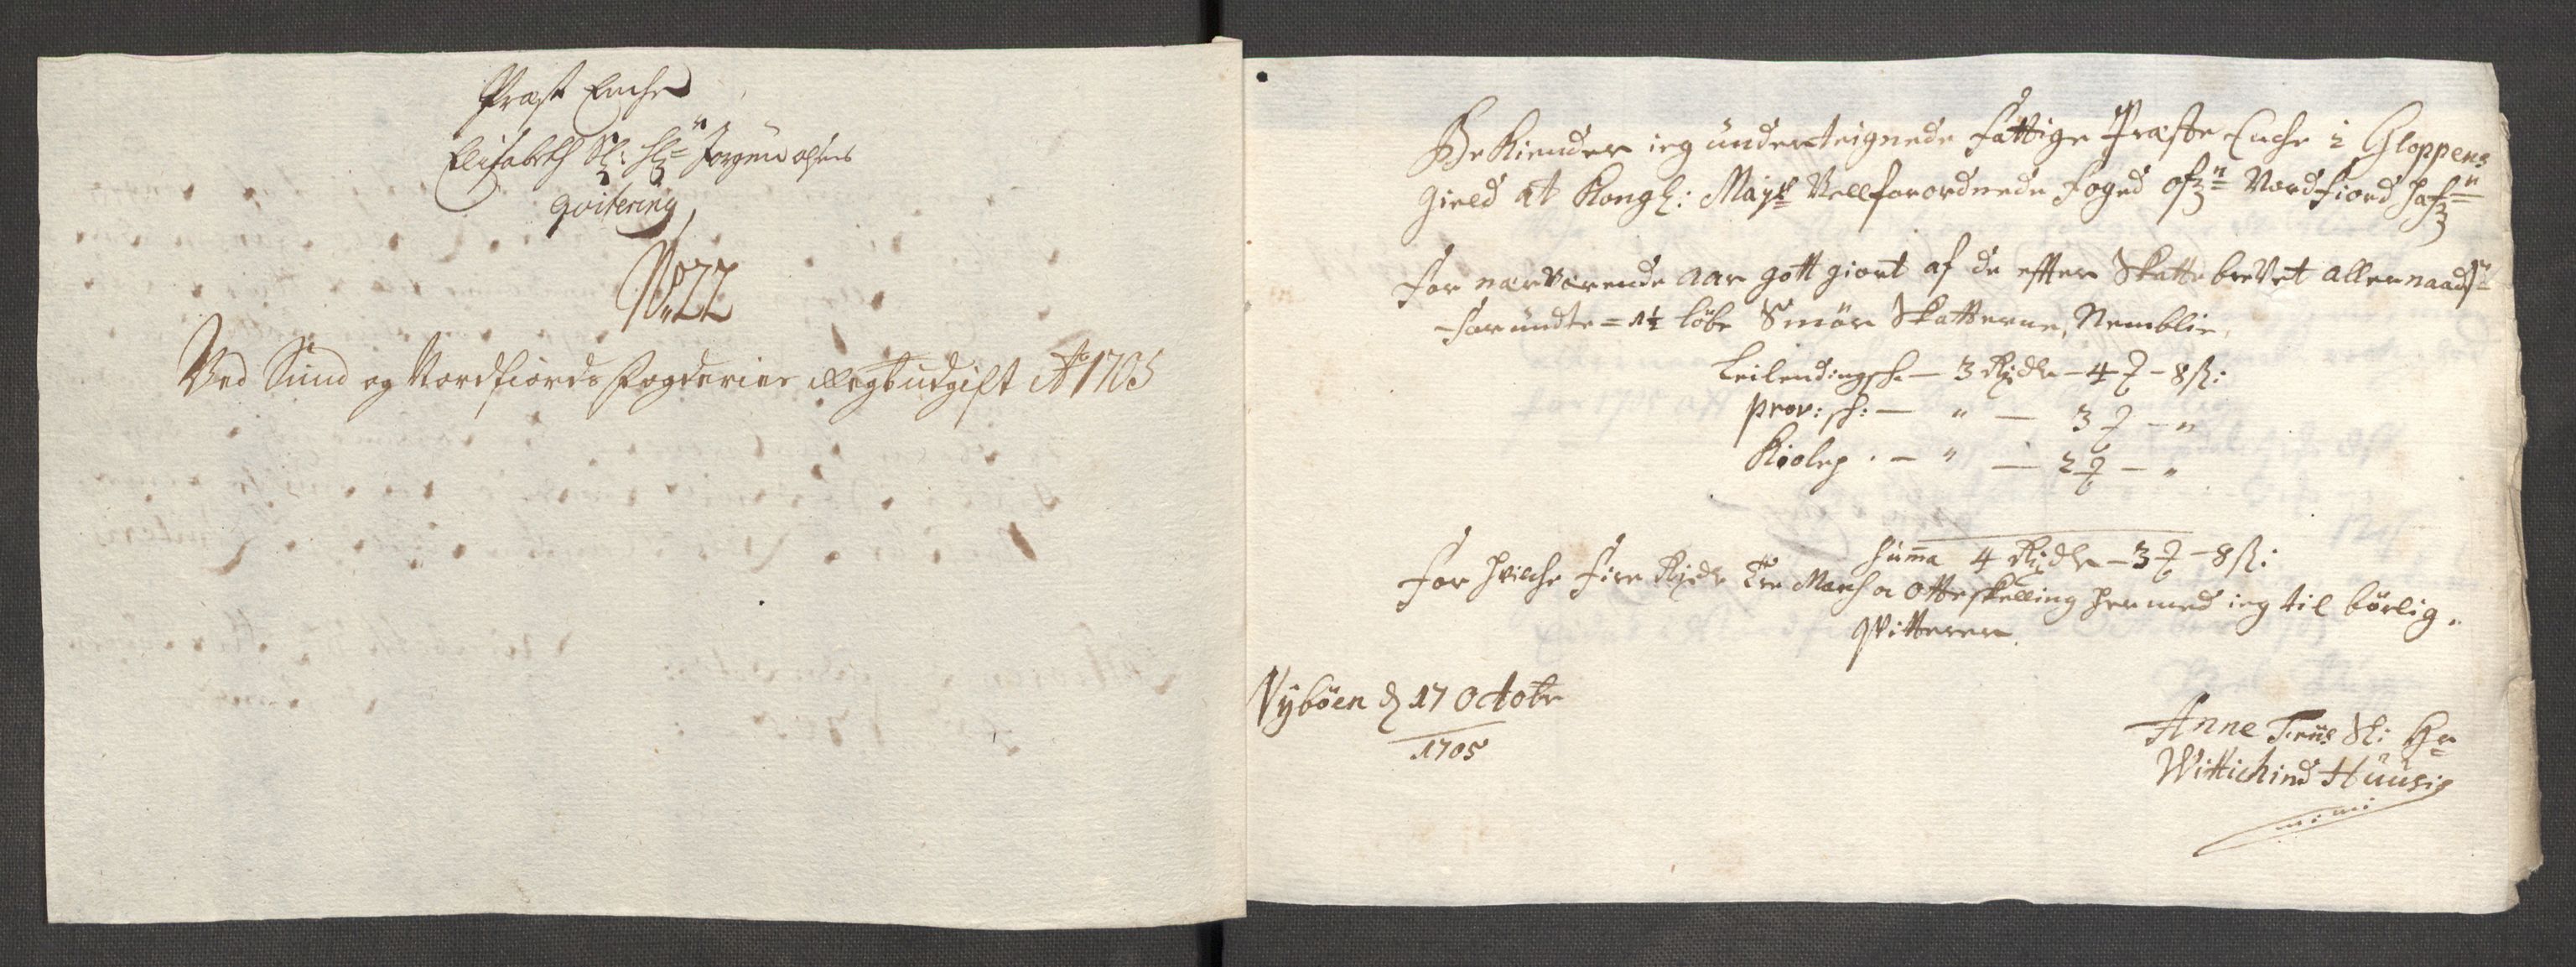 Præst Enche
Elisabeth Sl: Hr Jørgen olsens
qvitering
No 22
Ved Sund og Nordfiords fogderier Regnbs udgift Ao 1705
Bekiender ieg underteignede fattige Præste Enche i Gloppens
gield at Kongl: Mayts Vellforordnede foged ofr Nordfiord hafr
for nærværende aar gott giort af de effter Skattebrevet allernaadst
forundte = 1½ løbe Smør Skatterne, Nemblig,
Leilendingsch — 3 Rixdr — 4 ℳ — 8 ß:
prov: sch: — " — 3 ℳ — "
Kioleg. — " — 2 ℳ — "
Summa 4 Rixdr — 3 ℳ — 8 ß:
for hvilche fire Rixdr tre March og otte skelling hermed ieg til børlig.
qvitterer.
Nÿbøen d 17 Octobr
1705
Anne Friis Sl: Hr
Wittichind Huusis